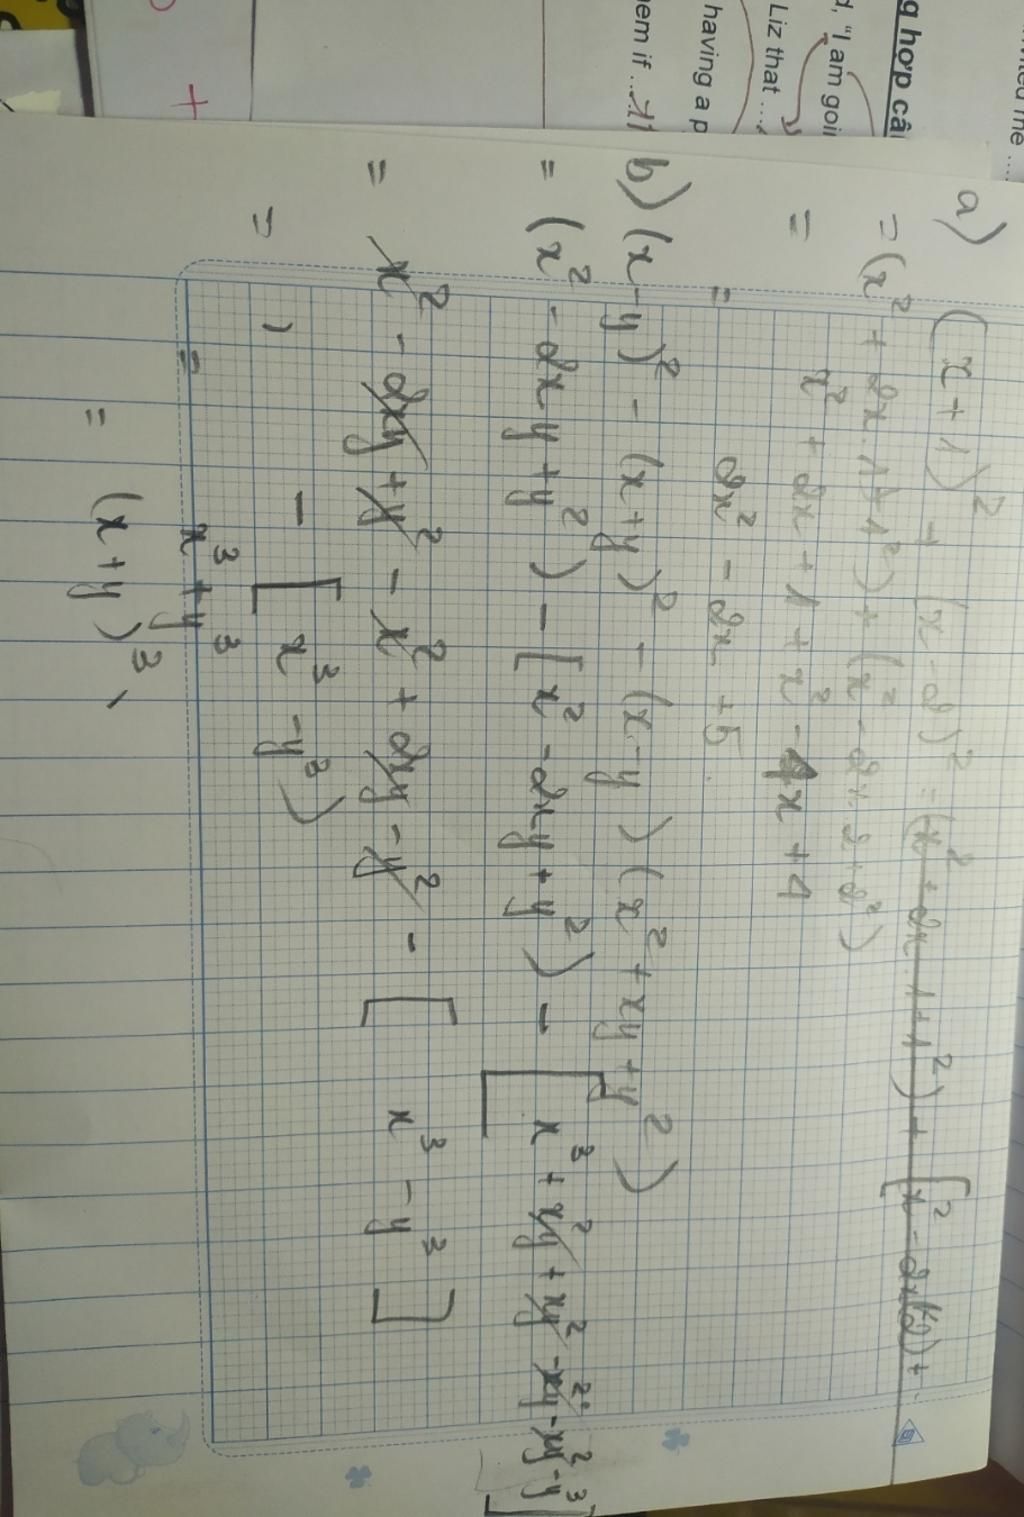 g hợp câ
d, "I am goin
Liz that ...
having a p
em if ...
a) (x+1)² + (x-2)² = (x²+2x.1+1²) + [x²-2x(2)+
= (x² + 2x.1+1²) + (x² - 2x.2+2²)
= x² + 2x + 1 + x² - 4x + 4
= 2x² - 2x + 5.
b) (x-y)² - (x+y)² - (x-y)(x²+xy+y²)
= (x² - 2xy + y²) - [x² - 2xy + y²) - [x³ + xy² + xy² - xy² - xy² - y³]
= x² - 2xy + y² - x² + 2xy - y² - [x³ - y³]
= ) - [x³ - y³)
= x³ + y³
= (x+y)³